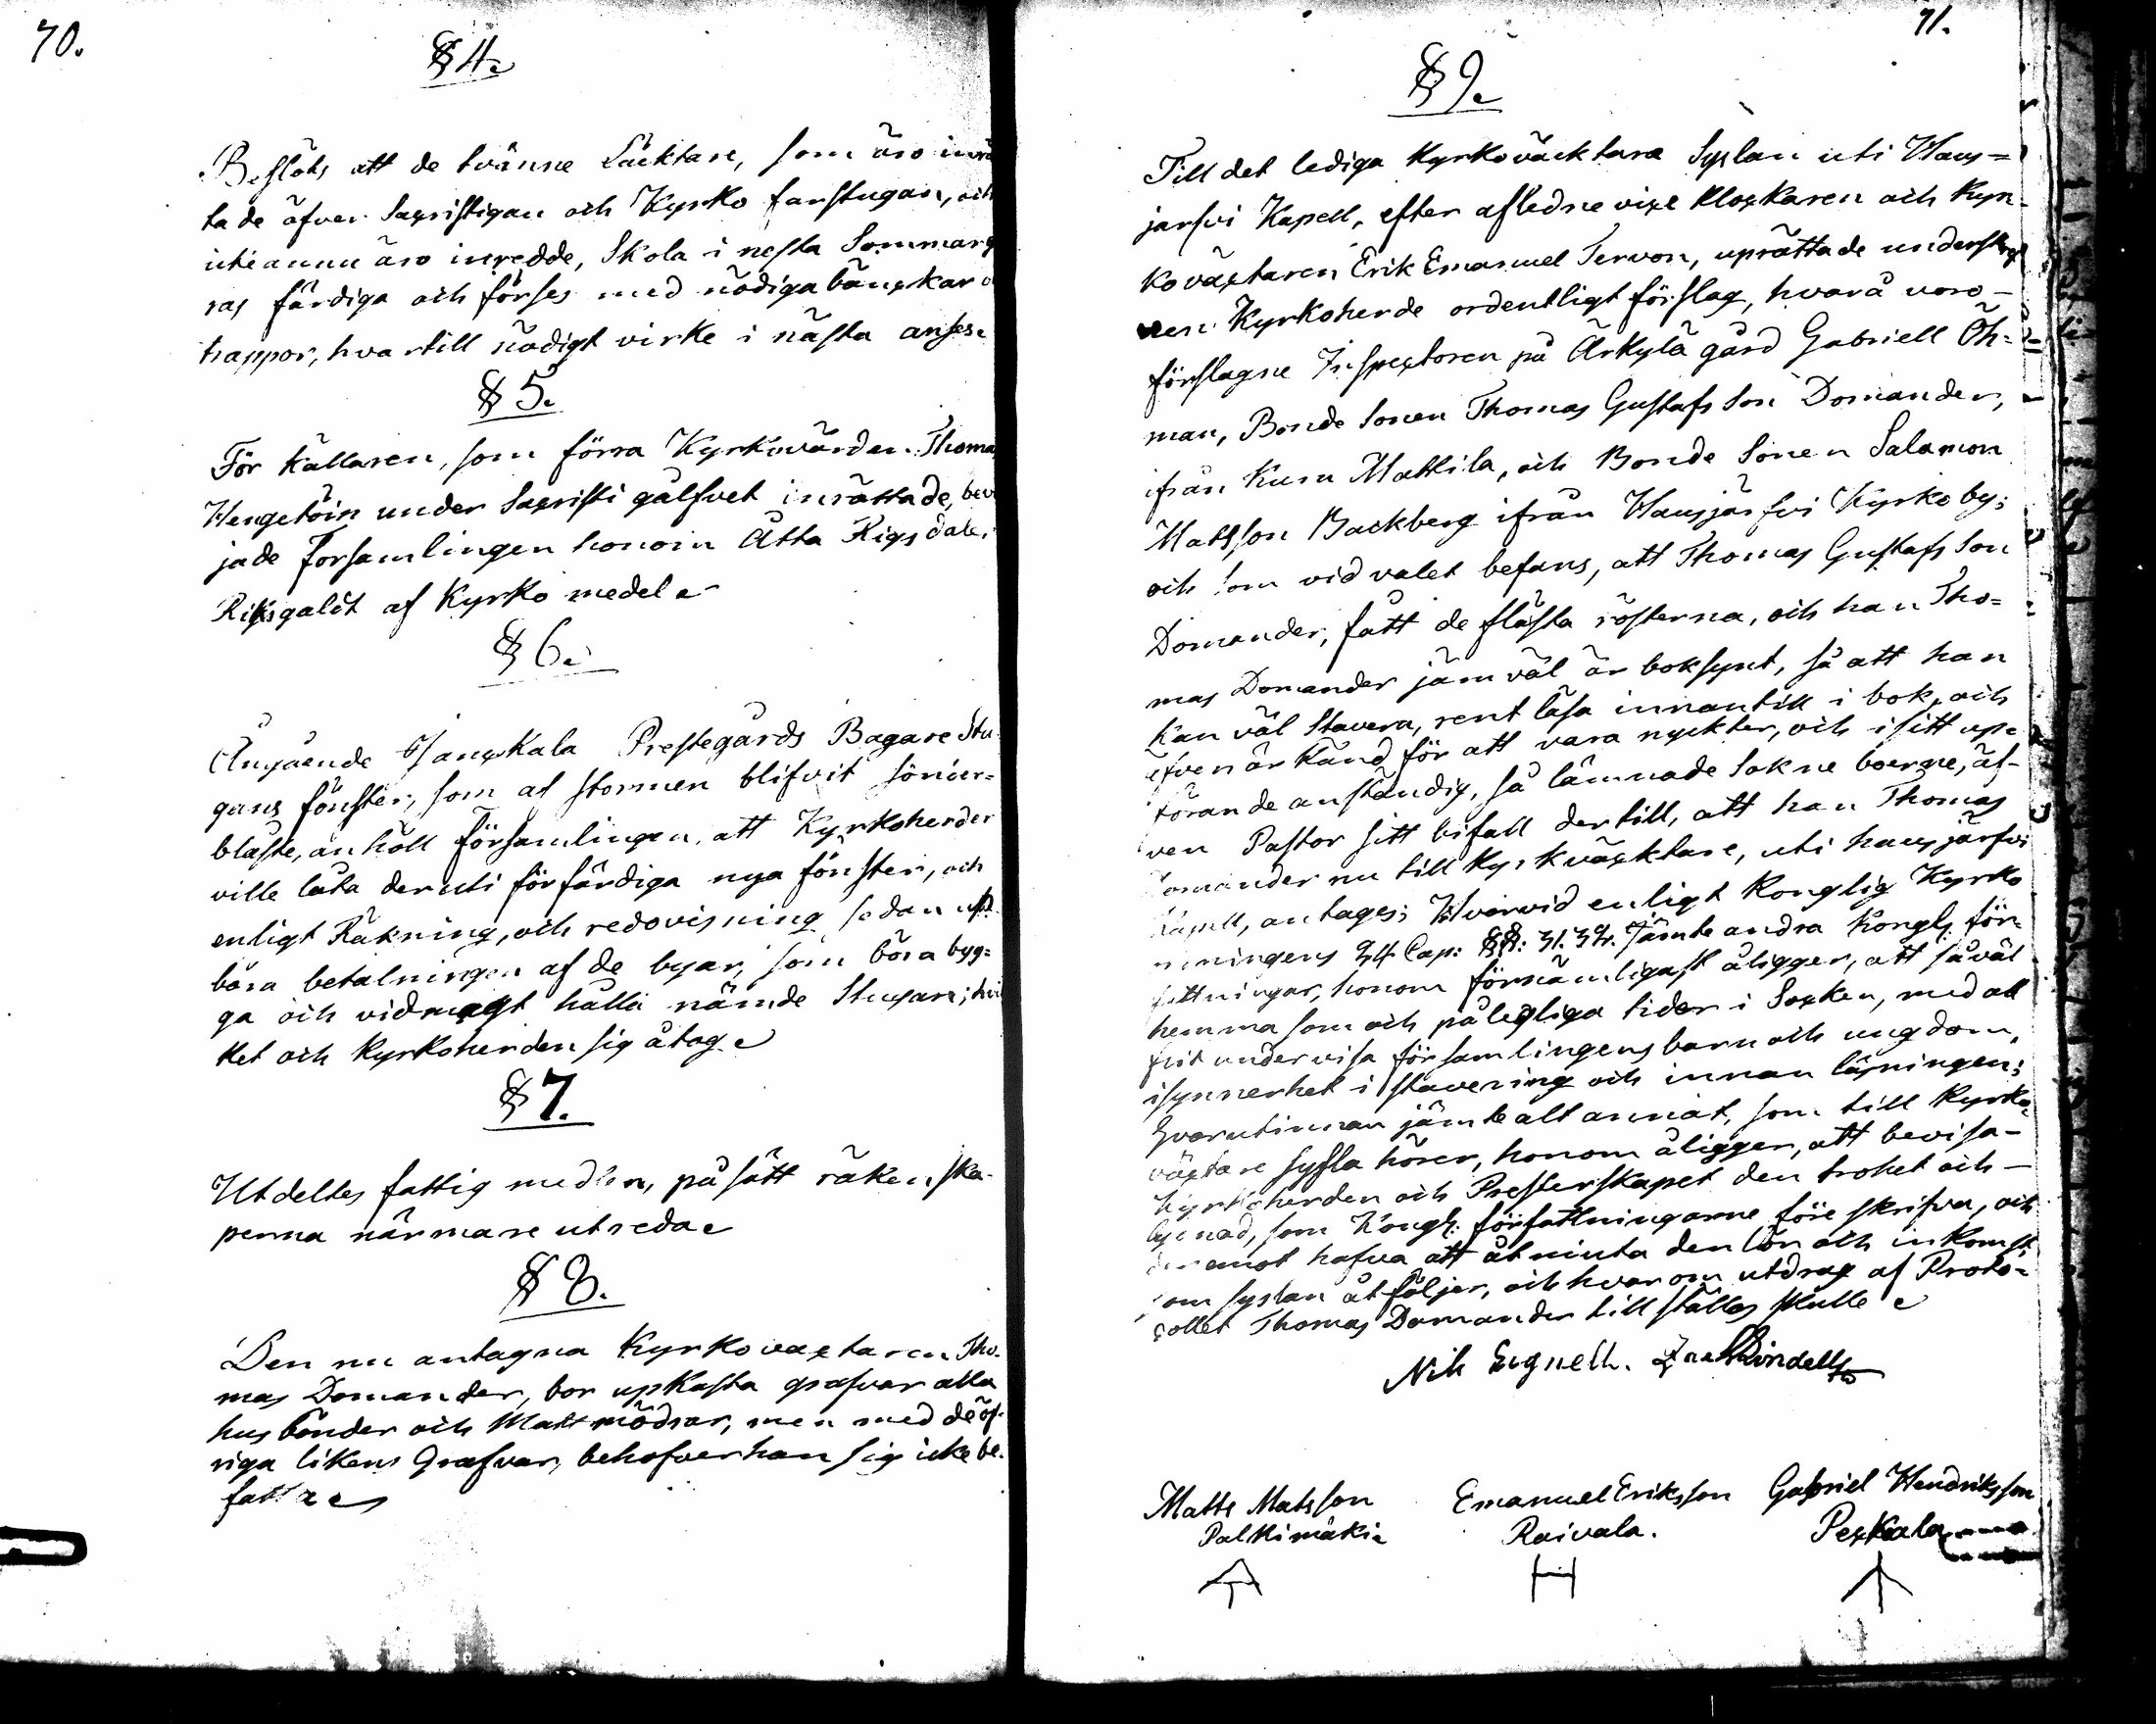 70.
§ 4.
Beslöts att de tvänne Läcktare, som äro inrä
tade öfver Sacristigan och Kyrko farstugan, och
ännu äro inredde, Skola i nesta Sommar
ras färdiga och förses med nödiga bänckar
trappor, hvartill nödigt virke i nästa anses.
§ 5.
För Källaren, som förra Kyrkovärden Thomas
Hengetöin under Sacristi gålfvet inrättade, bevi
jade Församlingen honom Åtta Riksdaler
Riksgäldt af Kyrko medel.
§ 6.
Angående Janckala Prestegårds Bagare Stu-
gans fönster, som af stormen blifvit sönder-
blåste, anhöll församlingen, att Kyrkoherden
ville låta deruti förfärdiga nya fönster, och
enligt Räkning, och redovisning sedan
bära betalningen af de byar, som böra byg-
ga och vidmagt hålla nämde Stugan; hvil
ket och Kyrkoherden sig åtog.
§ 7.
Utdeltes fattig medlen, på sätt räkenska-
perna närmare utreda.
§ 8.
Den nu antagna Kyrkovacktaren Tho-
mas Domander, bör upkasta grafvar alla
husbönder och Matmödrar, men med de öf-
riga likens Grafvar, behöfver han sig icke be-
fatta.
71.
§ 9.
Till det lediga Kyrkoväcktare Syslan uti Haus-
jarfvi Kapell, efter afledne vice Klockaren och Kyr-
koväcktaren Erik Emanuel Tervon, uprättade underskref
ven Kyrkoherde ordentligt förslag, hvarå voro
förslagne Inspectoren på Ärkylä gård Gabriell Öh-
man, Bonde Sonen Thomas Gustafs Son Domander,
ifrån Kuru Mattila, och Bonde Sonen Salamon
Matsson Backberg ifrån Hausjärfvi Kyrkoby;
och som vid valet befans, att Thomas Gustafs Son
Domander, fått de flästa rösterna, och han Tho-
mas Domander jämväl är boksynt, så att han
Kan väl Stavera, rent läsa innantill i bok, och
efven är känd för att vara nyckter, och i sitt up-
förande anständig, så lämnade Sokne boerne, äf-
ven Pastor sitt bifall dertill, att han Thomas
Domander nu till Kyrkväcktare, uti hausjärfvi
Kapell, antages; Hvarvid enligt Konglig Kyrko
ningens 24 Cap: §§: 31. 32. Jämte andra Kongl. för-
fattningar, honom förnämligast åligger, att såväl
hemma som och på legliga tider i Socken, med all
flit undervisa församlingens barn och ungdom,
isynnerhet i stavering och innan läsningen;
hvarutinnan jämte alt annat, som till Kyrko
väcktare sysla hörer, honom åligger, att bevisa
Kyrkoherden och Presterskapet den trohet och
lydnad, som Kongl: författningarne före skrifva, och
deremot hafva att åtniuta den lön och inkomst
som syslan åtföljer, och hvarom utdrag af Proto-
collet Thomas Domander till ställas skulle.
Nils Eigneth.
Matts Matsson Emanuel Eriksson Gabriel Hendriksson
Palkimäki. Raivala. Peckala